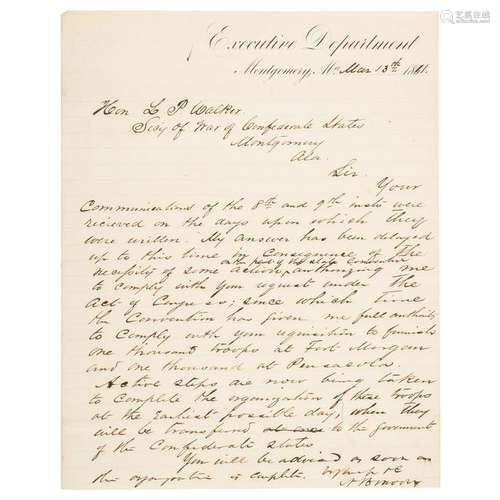 艺典网
Executive Department
Montgomery, Ala. Mar 13th 1861.
Hon L P Walker
Secy of War of Confederate States
Montgomery
Ala
Sir
Your
Communications of the 8th and 9th insts were
recieved on the days upon which they
were written. My answer has been delayed
up to this time in consequence of the
necessity of some action on the part of the State Convention authorizing me
to comply with your request under the
Act of Congress; since which time
the Convention has given me full authority
to comply with your requisition to furnish
one thousand troops at Fort Morgan
and one thousand at Pensacola.
Active steps are now being taken
to complete the organization of these troops
at the Earliest possible day, when they
will be transfered to the government
of the Confederate States
You will be advised as soon as
the organization is complete.
A B Moore